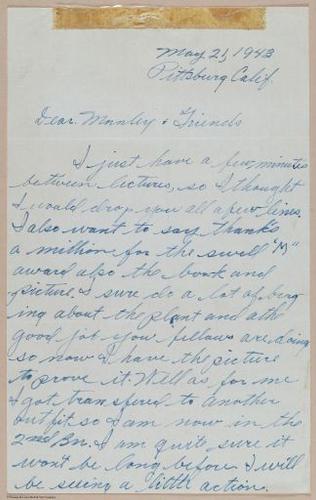 May 21, 1943
Pittsburg Calif.
Dear Manley & Friends
I just have a few minutes
between lectures, so I thought
I would drop you all a few lines.
I also want to say thanks
a million for the swell "M"
award also the book and
picture. I sure do a lot of brag
ing about the plant and the
good job you fellows are doing
so now I have the picture
to prove it. Well as for me
I got transfered to another
outfit so I am now in the
2nd Bn. I am quite sure it
won't be long before I will
be seeing a little action.